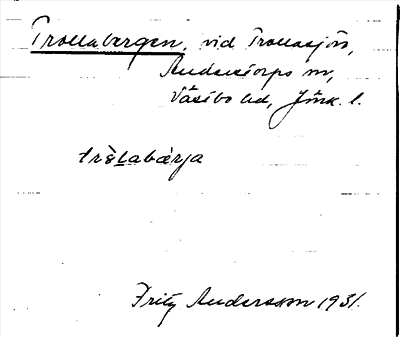 Trollabergen, vid Trollasjön,
Anderstorps sn,
Västbo hd, Jönk. l.
trὲlabærja
Fritz Andersson 1931.